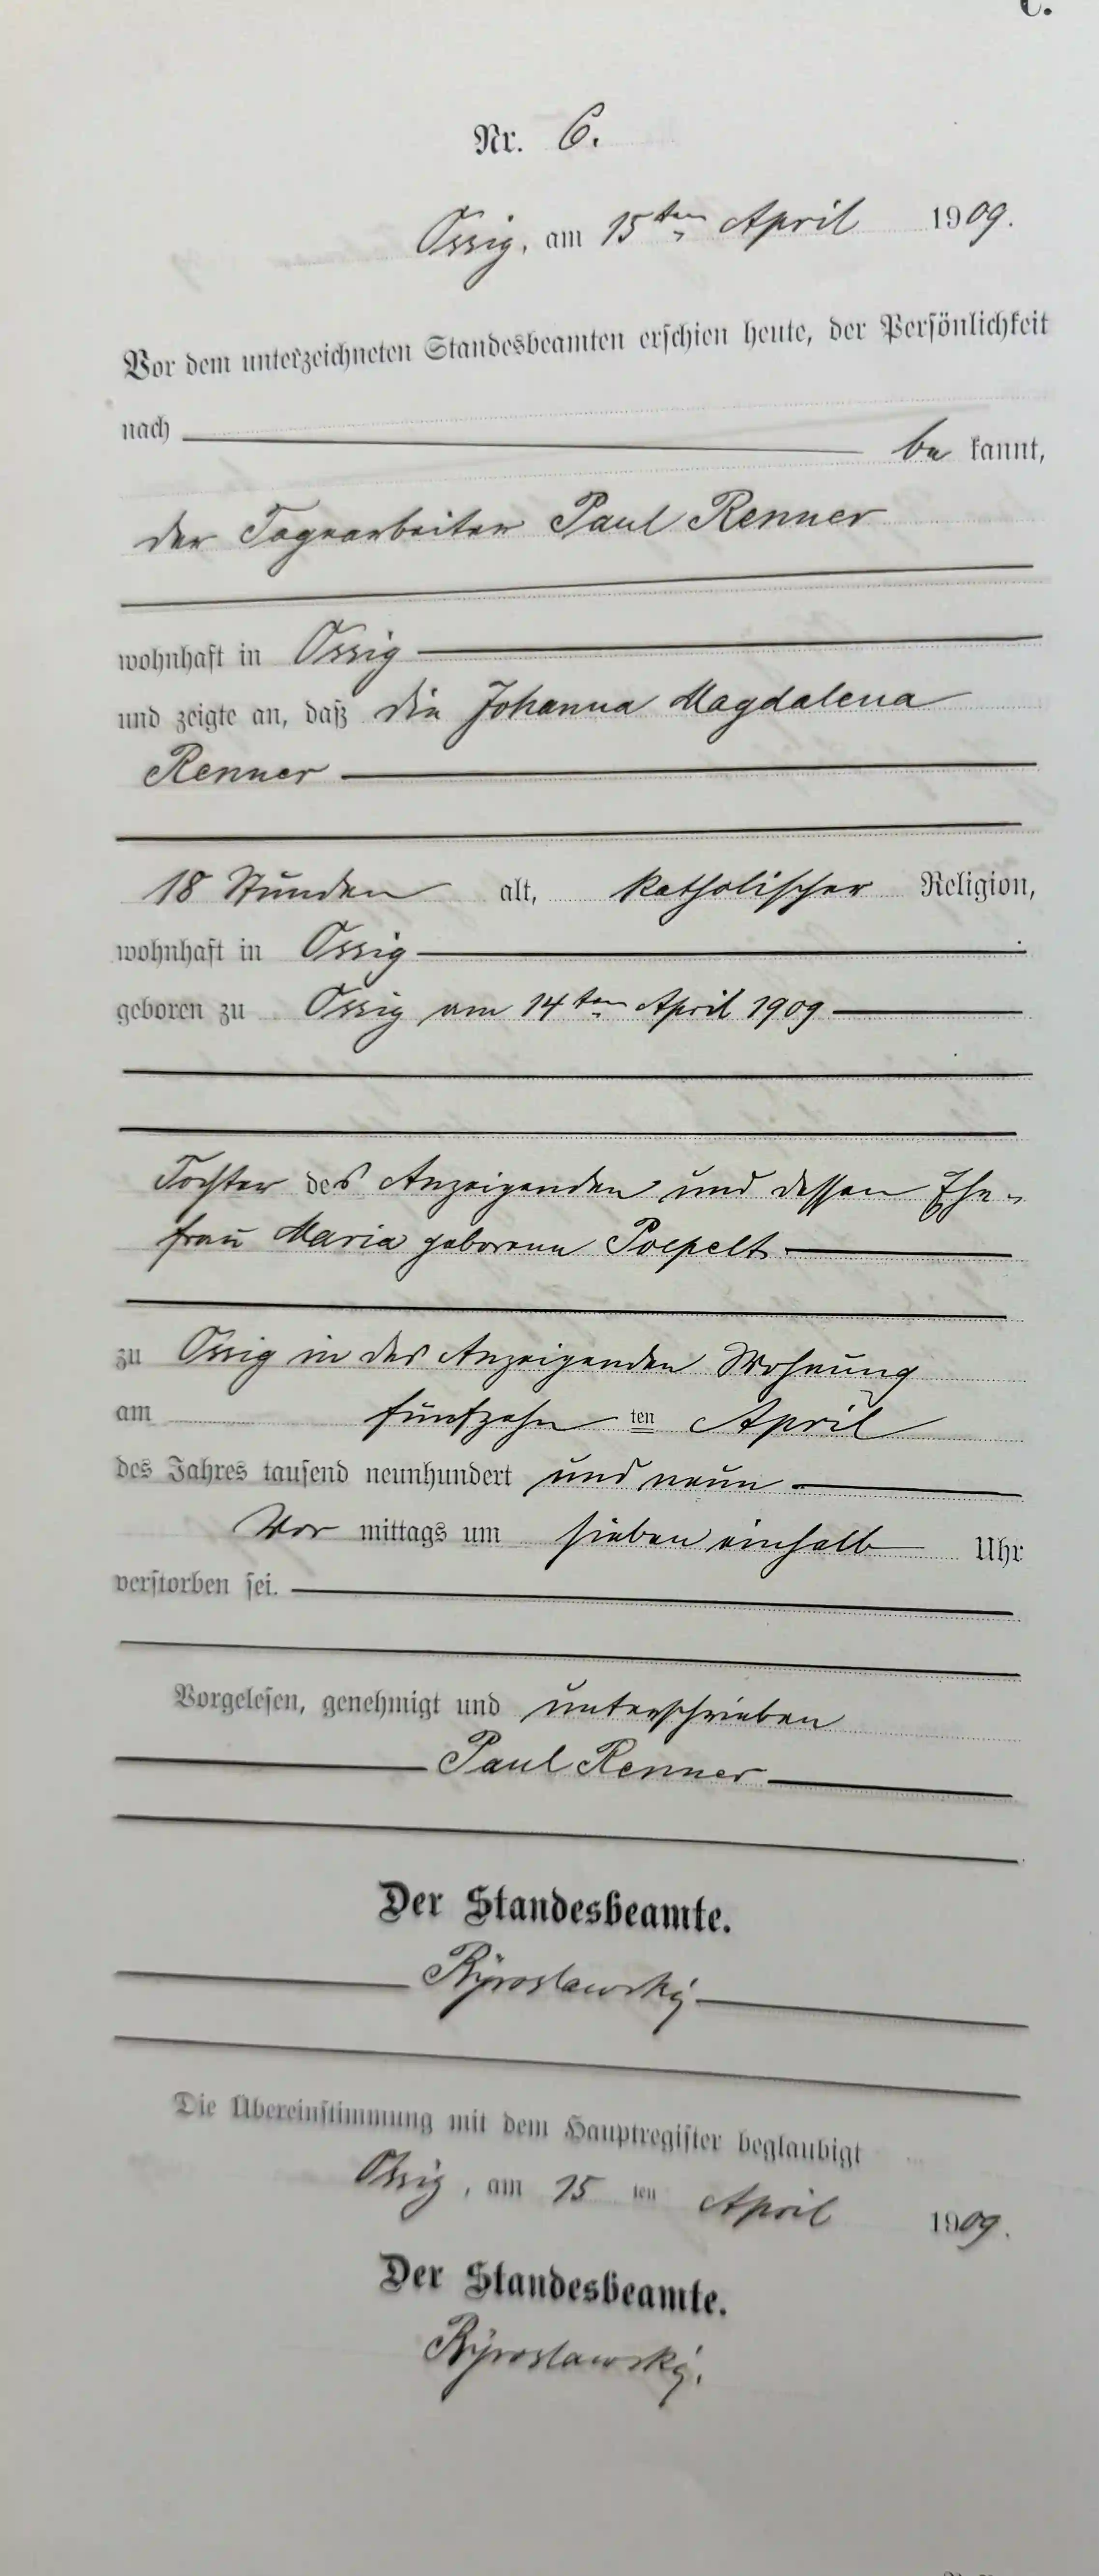 C.
Nr. 6.
Ossig, am 15ten April 1909.
Vor dem unterzeichneten Standesbeamten erschien heute, der Persönlichkeit
nach be kannt,
der Tagearbeiter Paul Renner
wohnhaft in Ossig
und zeigte an, daß die Johanna Magdalena
Renner
18 Stunden alt, katholischer Religion,
wohnhaft in Ossig
geboren zu Ossig am 14ten April 1909
Tochter des Anzeigenden und dessen Ehe-
frau Maria geborene Poepelt
zu Ossig in des Anzeigenden Wohnung
am fünfzehn ten April
des Jahres tausend neunhundert und neun
Vor mittags um sieben einhalb Uhr
verstorben sei.
Vorgelesen, genehmigt und unterschrieben
Paul Renner
Der Standesbeamte.
Die Übereinstimmung mit dem Hauptregister beglaubigt
Ossig, am 15 ten April 1909.
Der Standesbeamte.